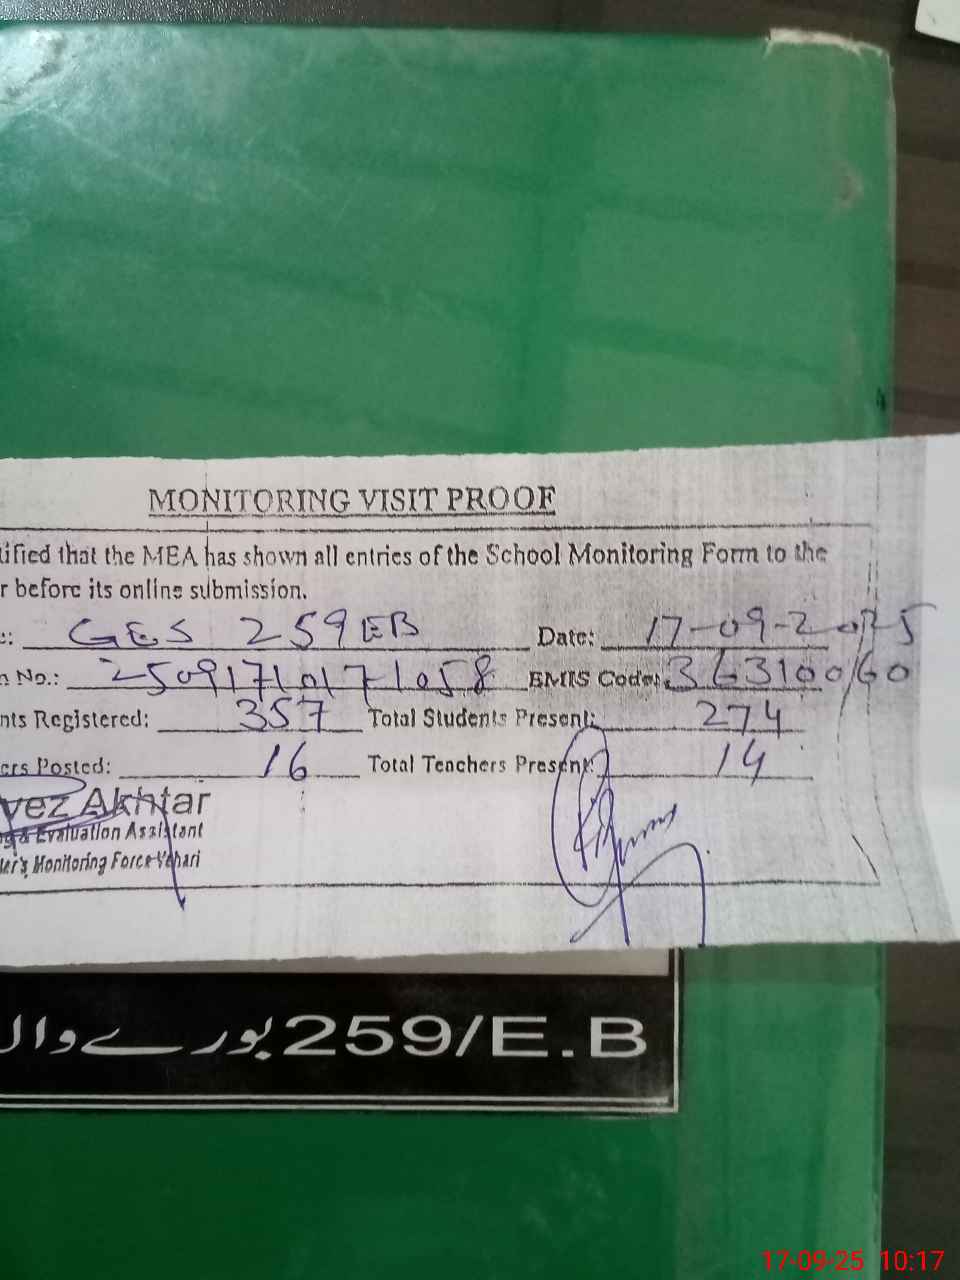 MONITORING VISIT PROOF
tified that the MEA has shown all entries of the School Monitoring Form to the
r before its online submission.
e: GES 259 EB Date: 17-09-2025
n No.: 25091710171058 EMIS Code: 36310060
nts Registered: 357 Total Students Present: 274
ers Posted: 16 Total Teachers Present: 14
vez Akhtar
ng & Evaluation Assistant
ter's Monitoring Force Vehari
259/E.B بورے وال
17-09-25 10:17